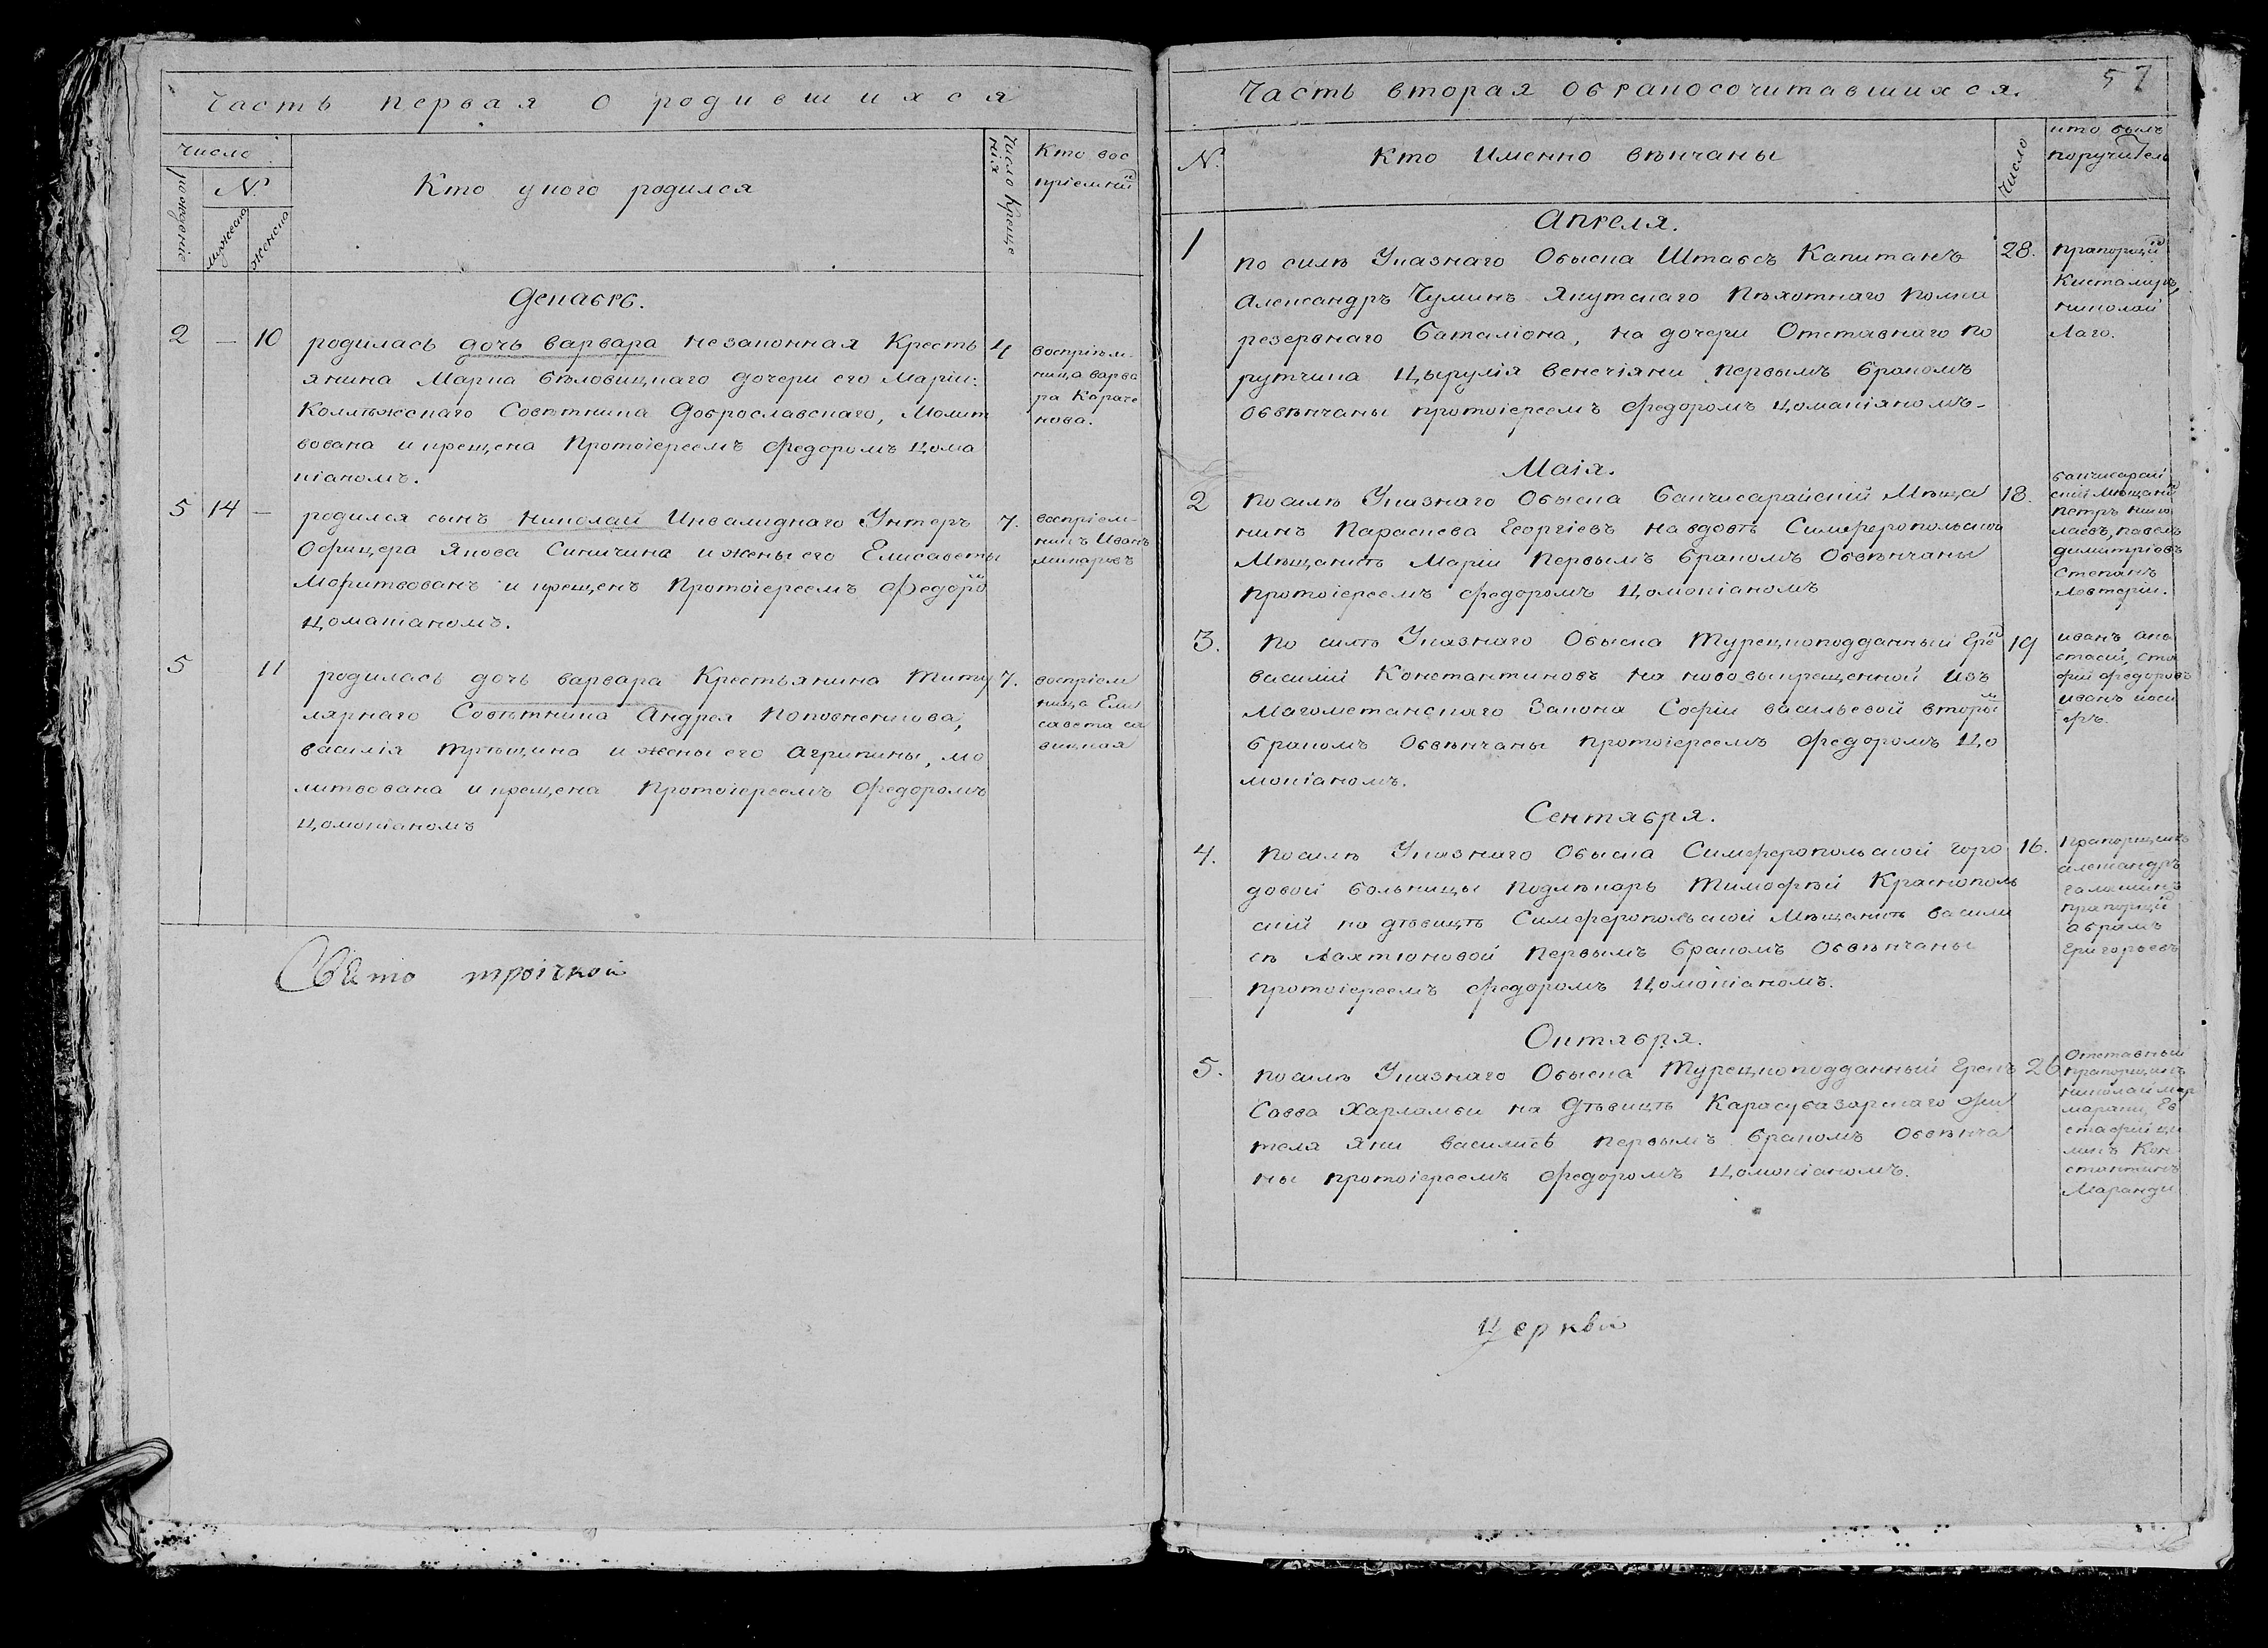 Часть первая о родившихся
Число
рожденіе
№.
мужеска
женска
Кто укого родился
Число креще
нія
Кто вос
пріемни
Декабрь.
2 — 10 родилась дочь варвара незаконная Кресть 4
янина Марка бѣловицкаго дочери его Маріи:
Коллѣжскаго Совѣтника Доброславскаго, Молит
вована и крещена Протоіереемъ Федоромъ Цома
кіаномъ.
воспріем-
ница варва
ра Караче
нова.
5 14 — родился сынъ николай Инвалиднаго Унтеръ 7.
Офицера Якова Синичина и жены его Елисаветы
Молитвованъ и крещенъ Протоіереемъ Федоро
Цомакіаномъ.
воспріем-
никъ Иванъ
макаровъ
5 11 родилась дочь варвара Крестьянина титу 7.
лярнаго Совѣтника Андрея
василія и жены его Агрипины, мо
литвована и крещена Протоіереемъ Федоромъ
Цомокіаномъ
воспріем
ница Ели
савета са
вицкая
Свято троіцкой
57
Часть вторая обракосочитавшихся.
№.
Кто Именно вѣнчаны
Число
кто былъ
поручитель
Апреля.
1 по силѣ Указнаго Обыска Штабсъ Капитанъ 28.
Александръ Чуминъ Якутскаго Пѣхотнаго полка
резервнаго баталіона, на дочери Отставнаго по
рутчика Цырулія венечіяни первымъ бракомъ
обвѣнчаны протоіереемъ Федоромъ Цомакіяномъ-
прапорщи
николай
Лаго.
Маія.
2 по силѣ Указнаго Обыска бакчисарайскій Мѣща 18.
нинъ Параскева Георгіевъ на вдовѣ Симферопольской
Мѣщанкѣ Маріи первымъ бракомъ Обвѣнчаны
протоіереемъ Федоромъ Цомокіаномъ
бакчисарай
скій мѣщани
петръ нико
лаевъ, павелъ
димитріевъ
Степанъ
Левтери.
3. по силѣ Указнаго Обыска Турецкоподданный Гре 19
василій Константиновъ на нововыкрещенной изъ
Магометанскаго Закона Софіи васильевой вторы
бракомъ Обвѣнчаны протоіереемъ Федоромъ Цо
мокіаномъ.
иванъ ана
стасій, ста
фій федоровъ
иванъ иоси
фъ.
Сентября.
4. по силѣ Указнаго Обыска Симферопольской горо 16.
довой больницы подлѣкарь Тимофѣй Краснополь
скій на дѣвицѣ Симферопольской Мѣщанкѣ васили
сѣ Лахтіоновой первымъ бракомъ Обвѣнчаны
протоіереемъ Федоромъ Цомокіаномъ.
прапорщикъ
александръ
прапорщи
абрамъ
Григорьевъ
Октября.
5. по силѣ Указнаго Обыска Турецкоподданный Грекъ 26
Савва Харламби на Дѣвицѣ Карасубазарскаго жи
теля Яни василисѣ первымъ бракомъ Обвѣнча
ны протоіереемъ Федоромъ Цомокіаномъ.
Отставный
прапорщикъ
николай мар
марани, Ев
стафій
Кон
стантинъ
Маранди
Церкви